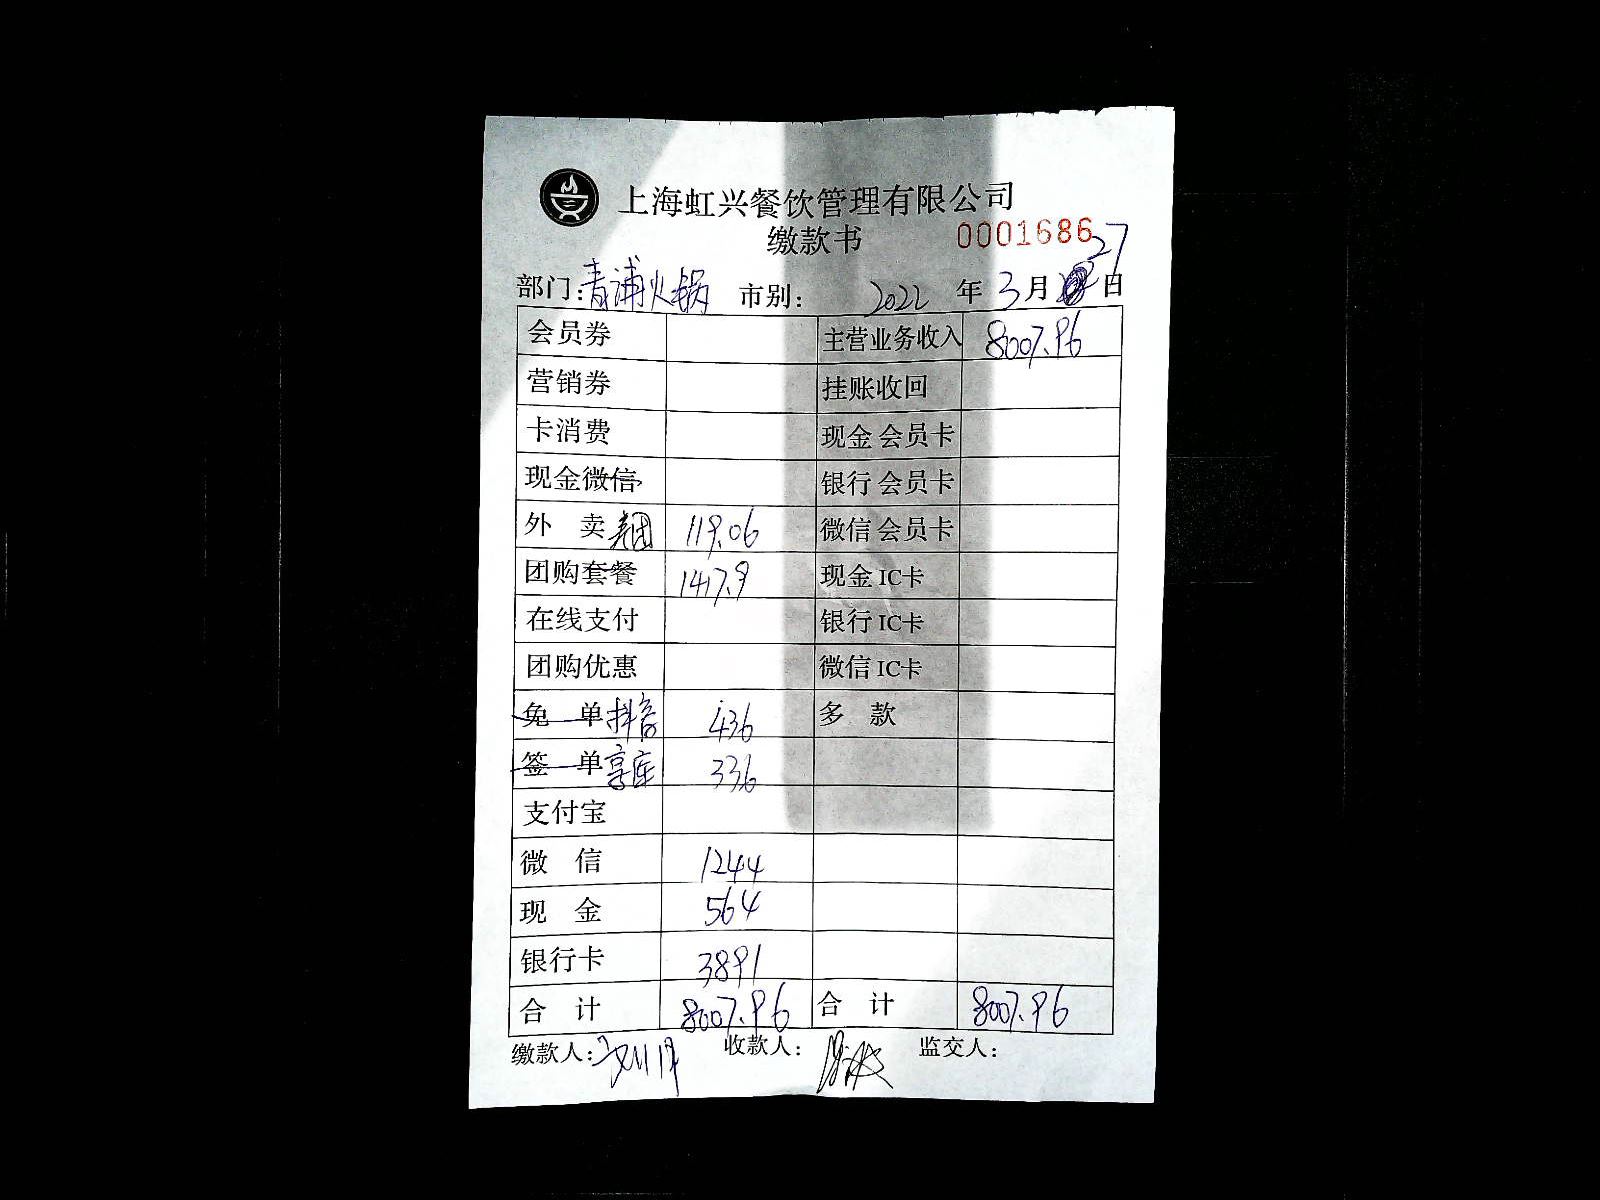 上海虹兴餐饮管理有限公司
缴款书 0001686
27
部门:青浦火锅 市别: 2022 年 3 月 日
会员券 主营业务收入 8007.96
营销券 挂账收回
卡消费 现金 会员卡
现金微信 银行 会员卡
外 卖 美团 119.06 微信 会员卡
团购套餐 1417.9 现金 IC卡
在线支付 银行 IC卡
团购优惠 微信 IC卡
免 单 抖音 436 多 款
签 单 享库 336
支付宝
微 信 1244
现 金 564
银行卡 3891
合 计 8007.96 合 计 8007.96
缴款人: 收款人: 监交人: